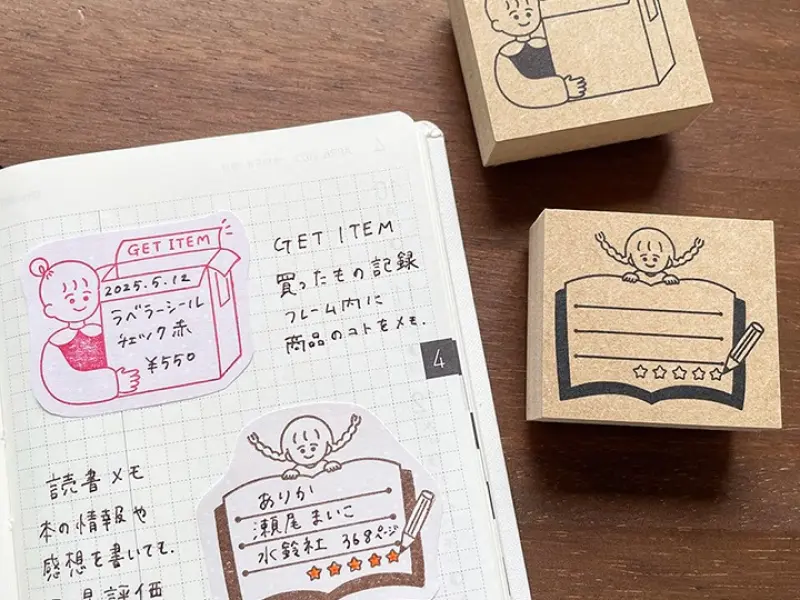 GET ITEM
2025.5.12
ラベラーシール
チェック赤
¥550
GET ITEM
買ったもの記録
フレーム内に
商品のコトをメモ.
4
ありか
瀬尾まいこ
水鈴社 368ページ
読書メモ
本の情報や
感想を書いても.
評価